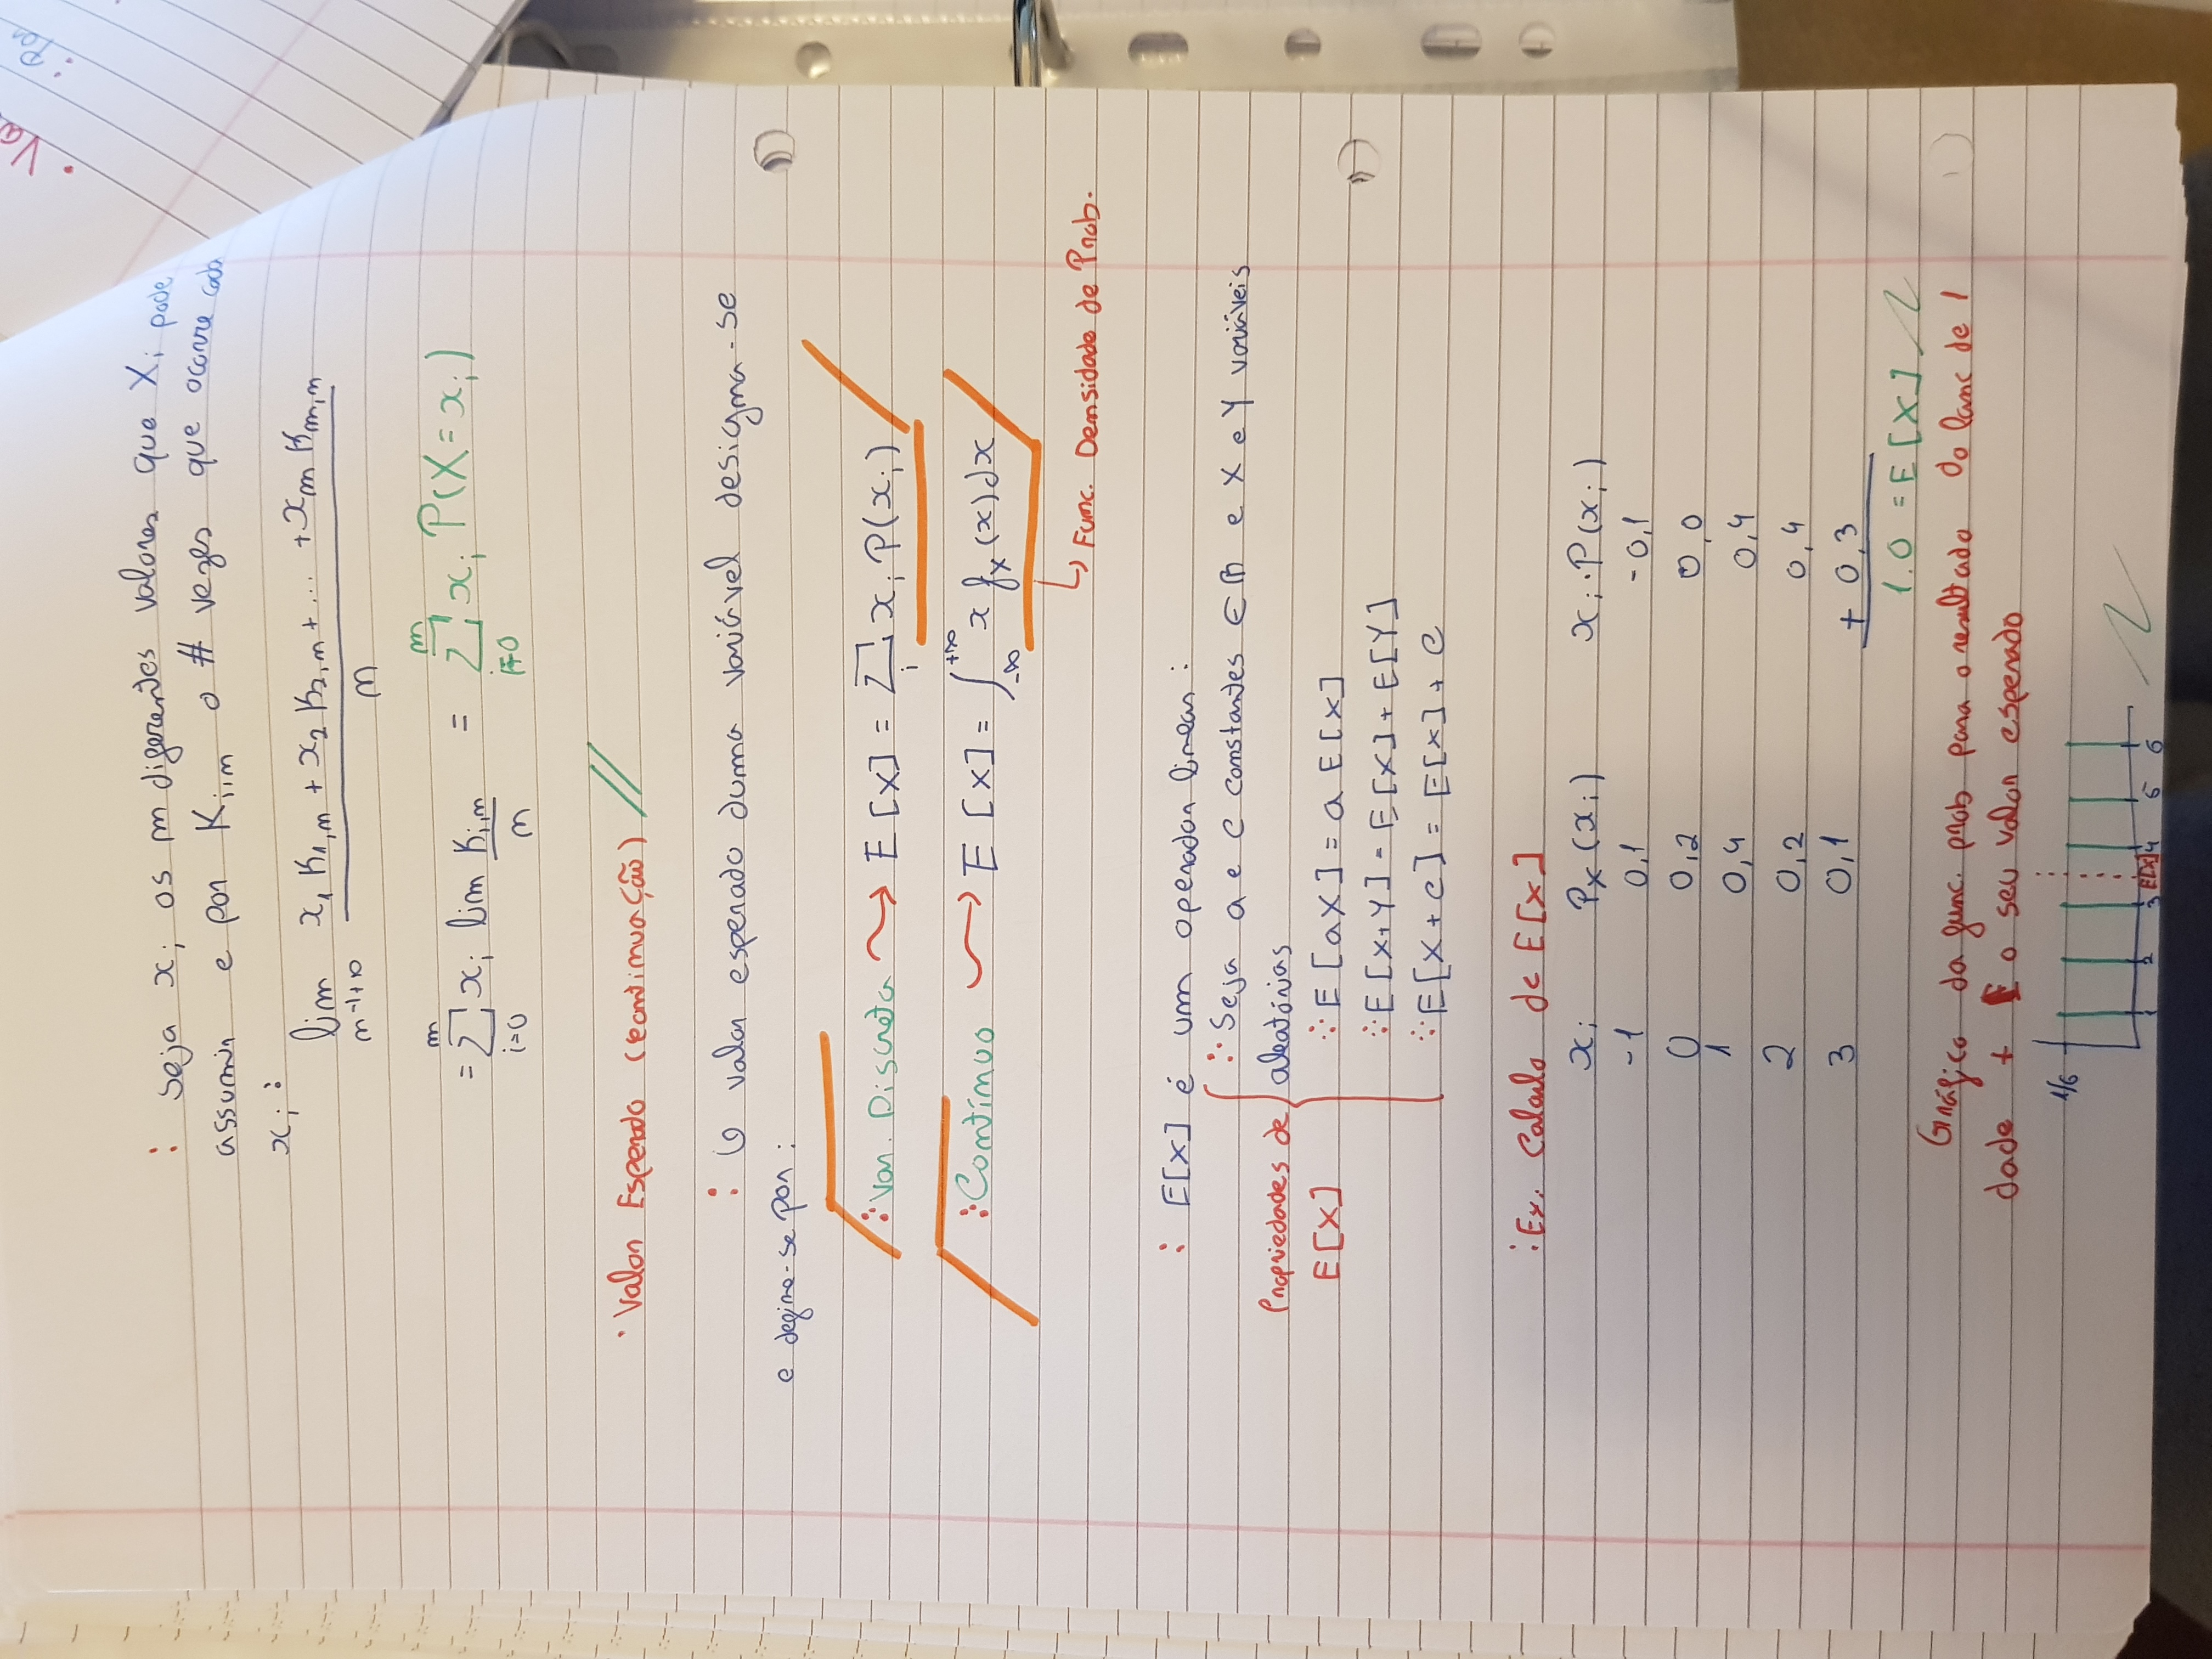 : Seja xᵢ os m diferentes valores que Xᵢ pode
assumir e por Kᵢ,ₙ o # vezes que ocorre cada
xᵢ :
lim x₁ K₁,ₙ + x₂ K₂,ₙ + ... + xₘ Kₘ,ₙ
n→+∞ n
= ∑ᵢ₌₀ᵐ xᵢ lim Kᵢ,ₙ / n = ∑ᵢ₌₀ᵐ xᵢ P(X = xᵢ)
· Valor Esperado (continuação) //
: O valor esperado duma variável designa-se
e define-se por :
: Var. Discreta → E [X] = ∑ᵢ xᵢ P(xᵢ)
: Contínuo → E [X] = ∫₋∞⁺∞ x fₓ(x)dx
↳ Func. Densidade de Prob.
: E[X] é um operador linear :
∴ Seja a e c constantes ∈ ℝ e X e Y variáveis
aleatórias
Propriedades de
E[X]
∵ E [aX] = a E[X]
∵ E [X+Y] = E[X] + E[Y]
∵ E[X + c] = E[X] + c
: Ex. Calculo de E[X]
xᵢ Pₓ(xᵢ) xᵢ · P(xᵢ)
-1 0,1 -0,1
0 0,2 0,0
1 0,4 0,4
2 0,2 0,4
3 0,1 + 0,3
1.0 = E[X]
Gráfico da func. prob para o resultado do lanc de 1
dade + E o seu valor esperado
1/6
1 2 3 E[X] 4 5 6